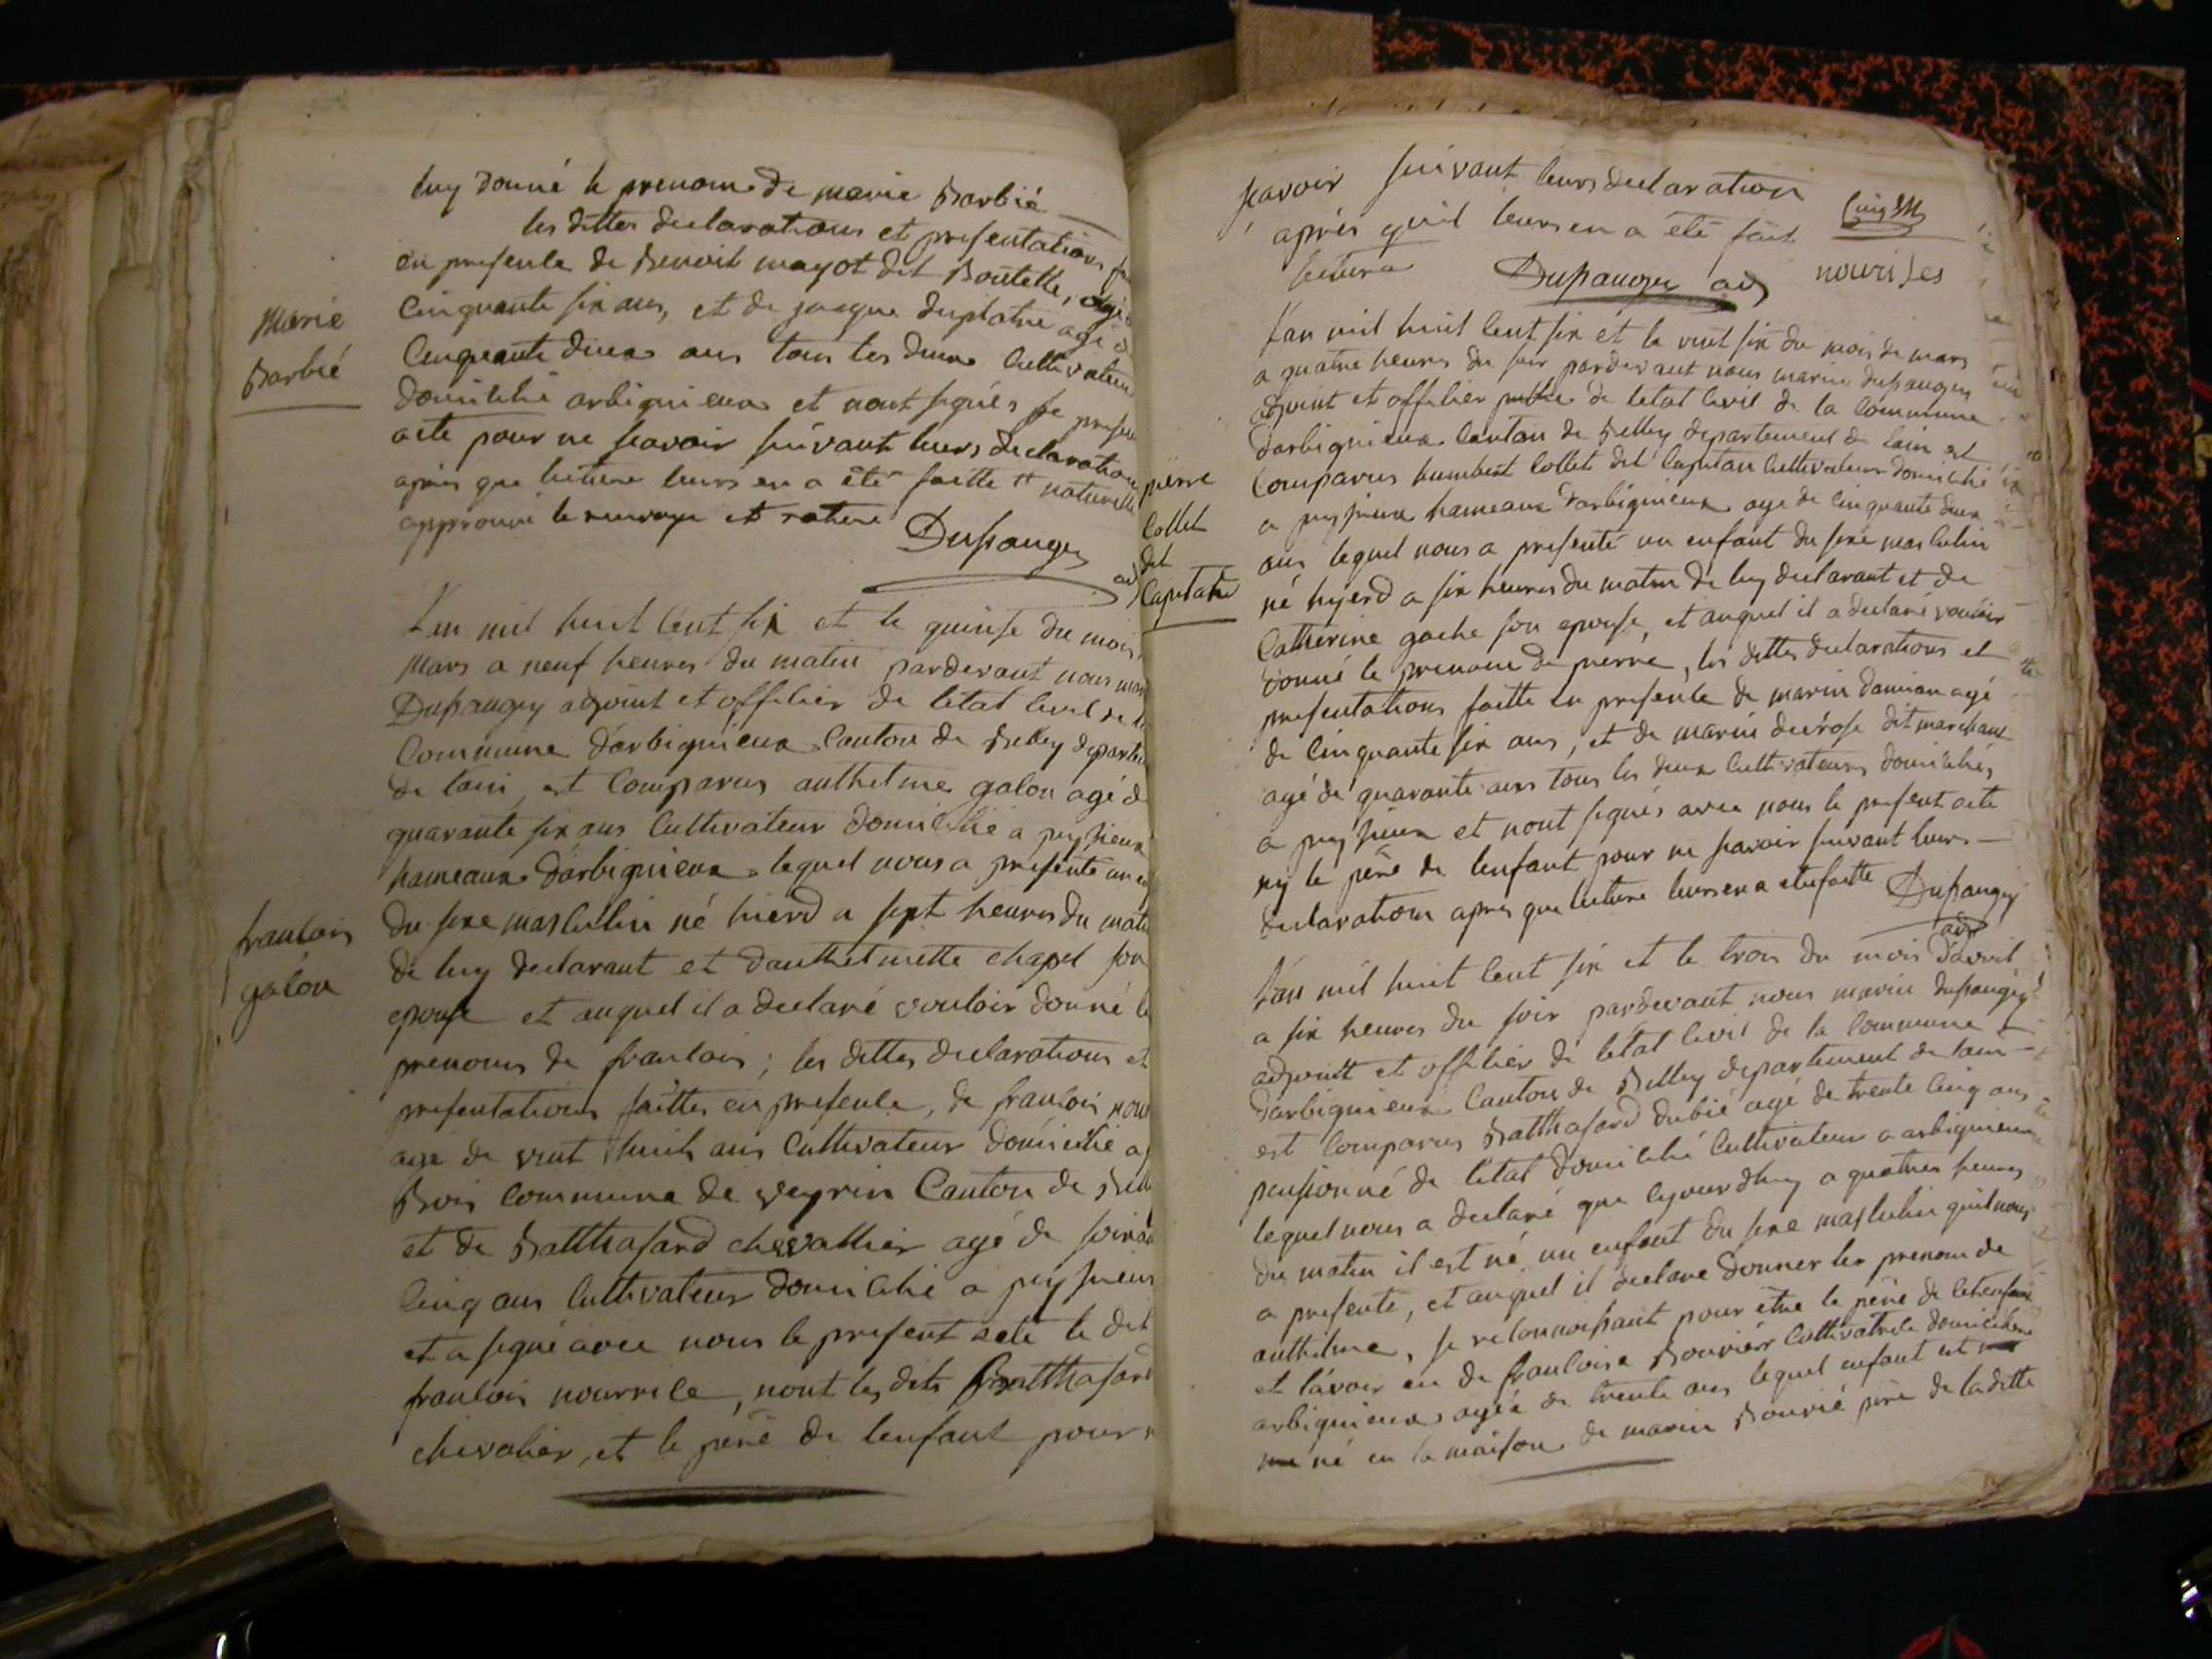 luy donné le prenom de marie Barbié
les dittes declarations et presentations
en presence de Benoit mayot dit Boutelle, agé
Cinquante six ans, et de jacque duplatre agé d
Cinquante deux ans tous les deux Cultivateur
domicilié arbignieux et nont signés
acte pour ne scavoir suivant leurs declaration
après que lecture leurs en a été faitte naturelle
approuvé le renvoye et rature
Dupaugey
adj
Marie
Barbié
Lan mil huit Cent six et le quinse du mois
Mars a neuf heures du matin pardevant nous
Dupaugey adjoint et officier de letat Civil de la
Commune d'arbignieux Canton de Belley departe
de lain, est Comparus anthelme galon agé d
quarante six ans Cultivateur domicilié a puysieux
hameaux d'arbignieux lequel nous a presenté un en
du sexe masculin né hierd a sept heures du matin
de luy declarant et danthelmette chapel son
epouse et auquel il a declaré vouloir donné le
prenoms de francois ; les dittes declarations et
presentations faittes en presence, de francois nour
agé de vint huit ans Cultivateur domicilié a
Bois Commune de veyrin Canton de Bell
et de Batthasard chevallier agé de soixa
Cinq ans Cultivateur domicilié a puysieux
et a signé avec nous le present acte le dit
francois nourrice, nont les dits Batthasard
chevalier, et le père de lenfant pour n
francois
galon
scavoir suivant leurs declaration
après quil leurs en a été fait
lecture Dupaugey adj nourises
pierre
Collet
dit
Capitan
Lan mil huit Cent six et le vint six du mois de mars
a quatre heures du soir pardevant nous marin dupaugey
adjoint et officier public de letat Civil de la Commune
d'arbignieux Canton de Belley departement de lain est
Comparus humbert Collet dit Capitan Cultivateur domicilié
a puysieux hameaux d'arbignieux agé de Cinquante deux
ans lequel nous a presenté un enfant du sexe masculin
né hyerd a six heures du matin de luy declarant et de
Catherine gache son epouse, et auquel il a declaré vouloir
donné le prenom de pierre, les dittes declarations et
presentations faitte en presence de marin damian agé
de Cinquante six ans, et de marin decrose dit marchant
agé de quarante ans tous les deux Cultivateurs domiciliés
a puysieux et nont signés avec nous le present acte
ny le père de lenfant pour ne scavoir suivant leurs
declarations apres que lecture leurs en a eté faitte Dupaugey
adj
Lan mil huit Cent six et le trois du mois d'avril
a six heures du soir pardevant nous marin dupaugey
adjointt et officier de létat Civil de la Commune
d'arbignieux Canton de Belley departement de lain
est Comparus Batthasard dubié agé de trente Cinq ans
pensionné de létat domicilié Cultivateur a arbignieux
lequel nous a declaré que Cejourdhuy a quatres heures
du matin il est né un enfant du sexe masculin quil nous
a presenté, et auquel il declare donner les prenom de
anthelme, se reconnoissant pour être le père de Cet enfant
et lávoir eu de francoise Bouvier Cultivatrice domiciliée
arbignieux agée de trente ans lequel enfant est
né en la maison de marin Bouvié père de laditte